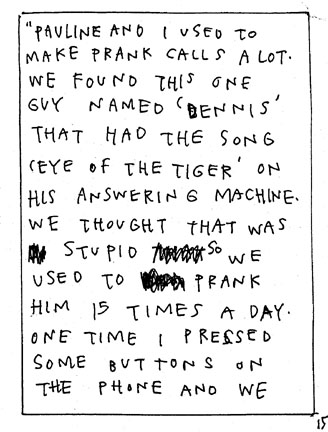 "PAULINE AND I USED TO
MAKE PRANK CALLS A LOT.
WE FOUND THIS ONE
GUY NAMED 'DENNIS'
THAT HAD THE SONG
'EYE OF THE TIGER' ON
HIS ANSWERING MACHINE.
WE THOUGHT THAT WAS
STUPID SO WE
USED TO PRANK
HIM 15 TIMES A DAY.
ONE TIME I PRESSED
SOME BUTTONS ON
THE PHONE AND WE
15